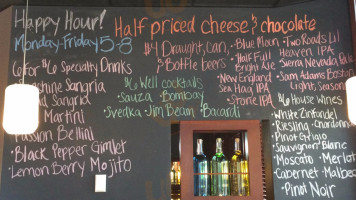 Happy Hour!
Monday-Friday 5-8
Half priced cheese & chocolate
$6 for $6 Specialty Drinks
Sangria
Sangria
Martini
Passion Bellini
• Black Pepper Gimlet
• Lemon Berry Mojito
$4 Draught, Can,
& Bottle beers
$6 Well cocktails
Sauza • Bombay
Svedka • Jim Beam • Bacardi
• Blue Moon
• Half Full
Bright Ale
• New England
Sea Hag IPA
• Stone IPA
• Two Roads Lil
Heaven IPA
• Sierra Nevada Pale
• Sam Adams Boston
Light, Seasonal
$6 House Wines
• White Zinfandel
• Riesling • Chardonnay
• Pinot Grigio
• Sauvignon Blanc
• Moscato • Merlot
• Cabernet • Malbec
• Pinot Noir